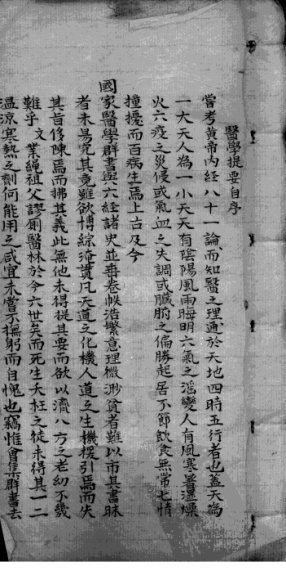 醫學提要自序
嘗考黃帝内經八十一論而知醫之理通於天地四時五行者也蓋天為
一大天人為一小天天有陰陽風雨晦明六氣之淫變人有風寒暑濕燥
火六疫之災侵或氣血之失調或臟腑之偏勝起居不節飲食無常七情
撞擾而百病生焉上古及今
國家醫學群書與六經諸史並垂卷帙浩繁意理微渺貧者難以市其書昧
者未易究其竟雖欲博綜淹貫凡天道之化機人道之生機援引焉而失
其旨修陳焉而拂其義此無他未得提其要而欲以濟八方之老幼不幾
難乎文業繩祖父謬厠醫林於今六世矣而死生夭枉之從未得其一二
溫涼寒熱之劑何能用之咸宜未嘗不撫躬而自愧也竊惟會集群書去